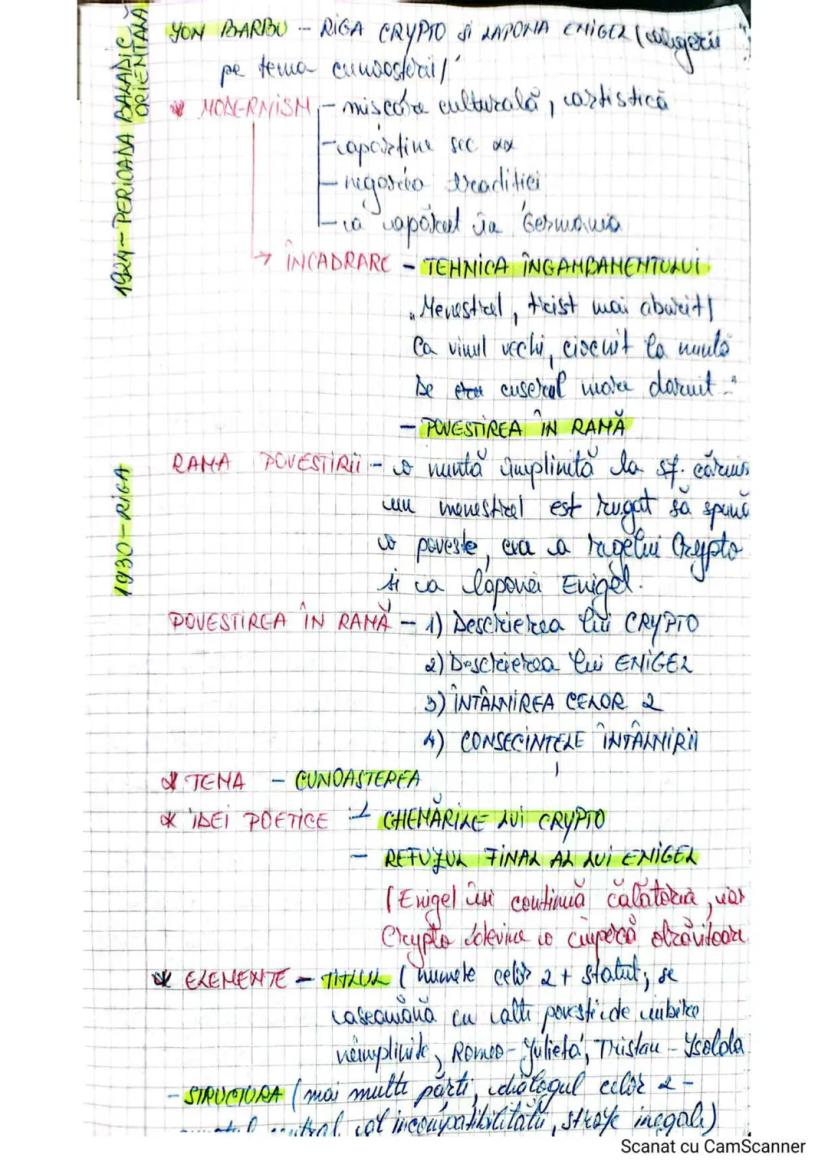 1924 – PERIOADA BALADIC ORIENTALĂ
1930 – RIGA
ION BARBU – RIGA CRYPTO ȘI LAPONA ENIGEL (alegorie
pe tema cunoașterii)
* MODERNISM – mișcare culturală, artistică
– aparține sec XX
– negarea tradiției
– a apărut în Germania
→ ÎNCADRARE – TEHNICA ÎNGAMBAMENTULUI
„Menestrel, trist mai aburit/
Ca vinul vechi, ciocnit la nuntă
De cuscrul mare dăruit."
– POVESTIREA ÎN RAMĂ
RAMA POVESTIRII – o nuntă împlinită la sf. căruia
un menestrel est rugat să spună
o poveste, cea a regelui Crypto
și a laponei Enigel.
POVESTIREA ÎN RAMĂ – 1) Descrierea lui CRYPTO
2) Descrierea lui ENIGEL
3) ÎNTÂLNIREA CELOR 2
4) CONSECINȚELE ÎNTÂLNIRII
* TEMA – CUNOAȘTEREA
* IDEI POETICE – CHEMĂRILE LUI CRYPTO
– REFUZUL FINAL AL LUI ENIGEL
(Enigel își continuă călătoria, iar
Crypto devine o ciupercă otrăvitoare
* ELEMENTE – TITLUL (numele celor 2 + statut, se
aseamănă cu alte povești de iubire
neîmplinite, Romeo – Julieta, Tristan – Isolda
– STRUCTURA (mai multe părți, dialogul celor 2 –
central al incompatibilității, strofe inegale)
Scanat cu CamScanner